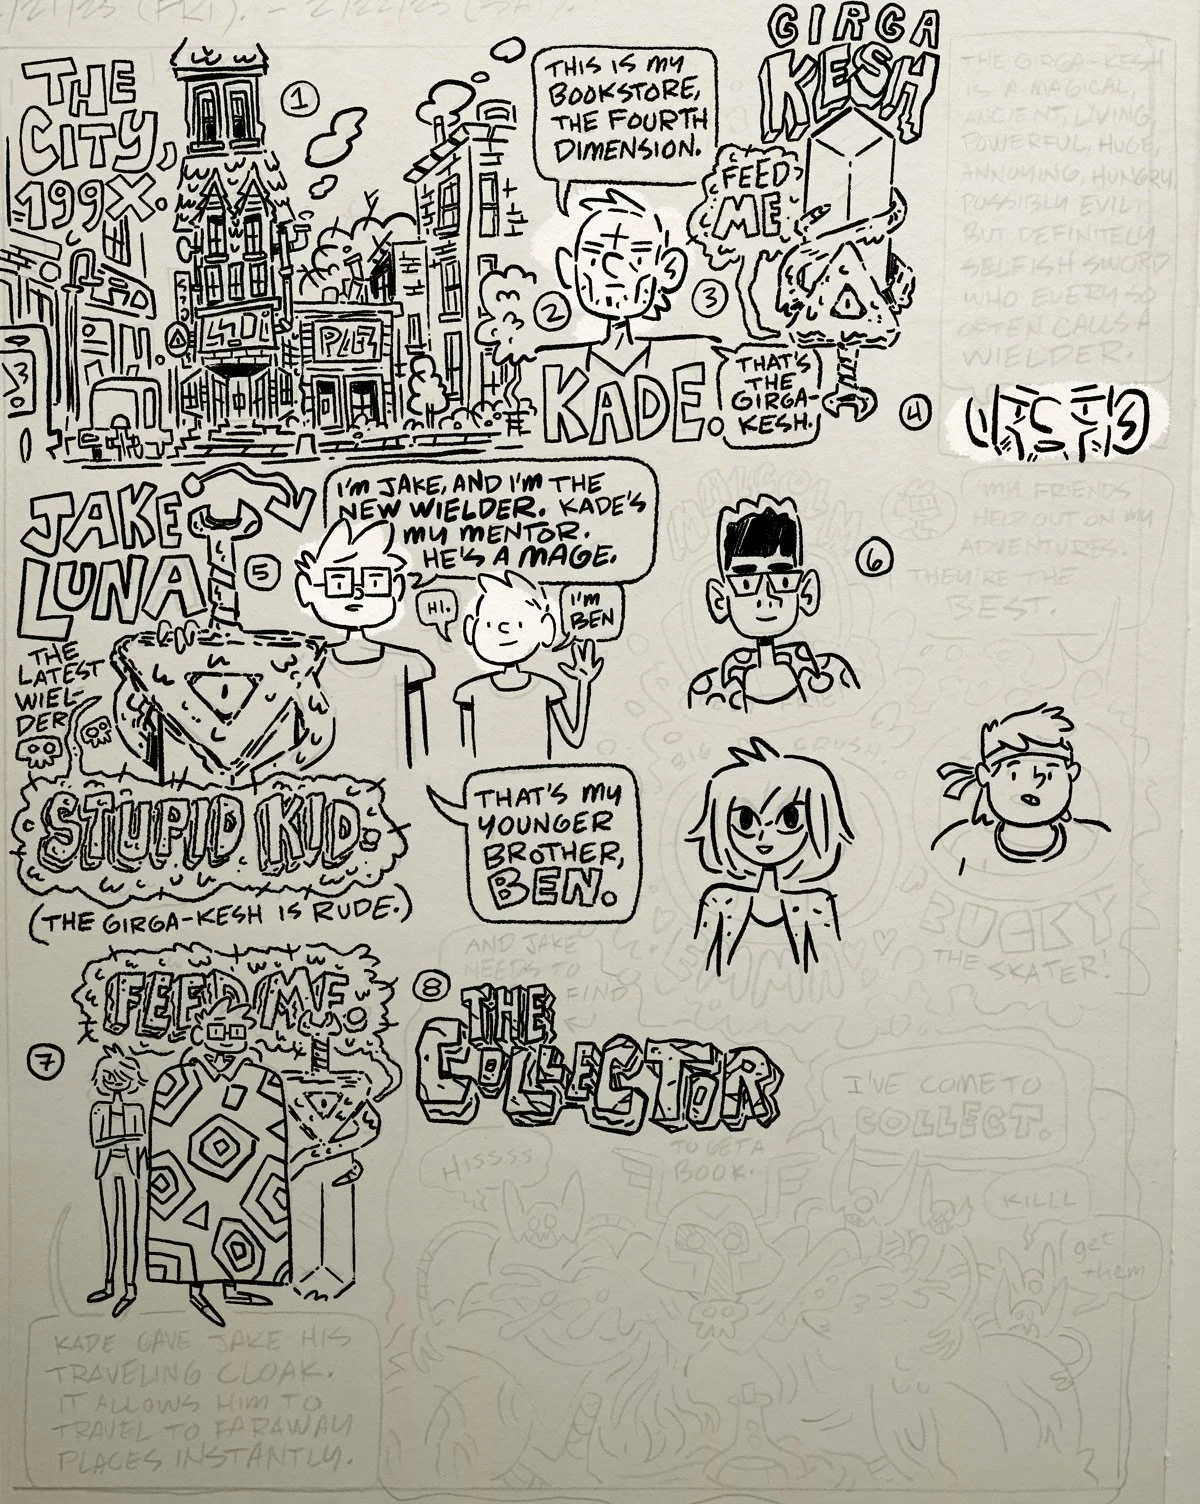 2/22/23
THE
CITY,
199X.
1
PIZZ
THIS IS MY
BOOKSTORE,
THE FOURTH
DIMENSION.
2
KADE.
GIRGA
KESH
FEED
ME
3
THAT'S
THE
GIRGA-
KESH.
THE GIRGA-KESH
IS A MAGICAL,
ANCIENT, LIVING,
POWERFUL, HUGE,
ANNOYING, HUNGRY,
POSSIBLY EVIL,
BUT DEFINITELY
SELFISH SWORD
WHO EVERY SO
OFTEN CALLS A
WIELDER.
4
JAKE
LUNA
THE
LATEST
WIEL-
DER
5
I'M JAKE, AND I'M THE
NEW WIELDER. KADE'S
MY MENTOR.
HE'S A MAGE.
HI.
I'M
BEN
THAT'S MY
YOUNGER
BROTHER,
BEN.
STUPID KID.
(THE GIRGA-KESH IS RUDE.)
MALCOLM
6
MY FRIENDS
HELP OUT ON MY
ADVENTURES.
THEY'RE THE
BEST.
BIG CRUSH.
BUCKY
THE
SKATER!
FEED ME.
7
KADE GAVE JAKE HIS
TRAVELING CLOAK.
IT ALLOWS HIM TO
TRAVEL TO FARAWAY
PLACES INSTANTLY.
AND JAKE
NEEDS TO
FIND
8
THE
COLLECTOR
TO GET A
BOOK.
I'VE COME TO
COLLECT.
HISSSS
KILLL
get
them